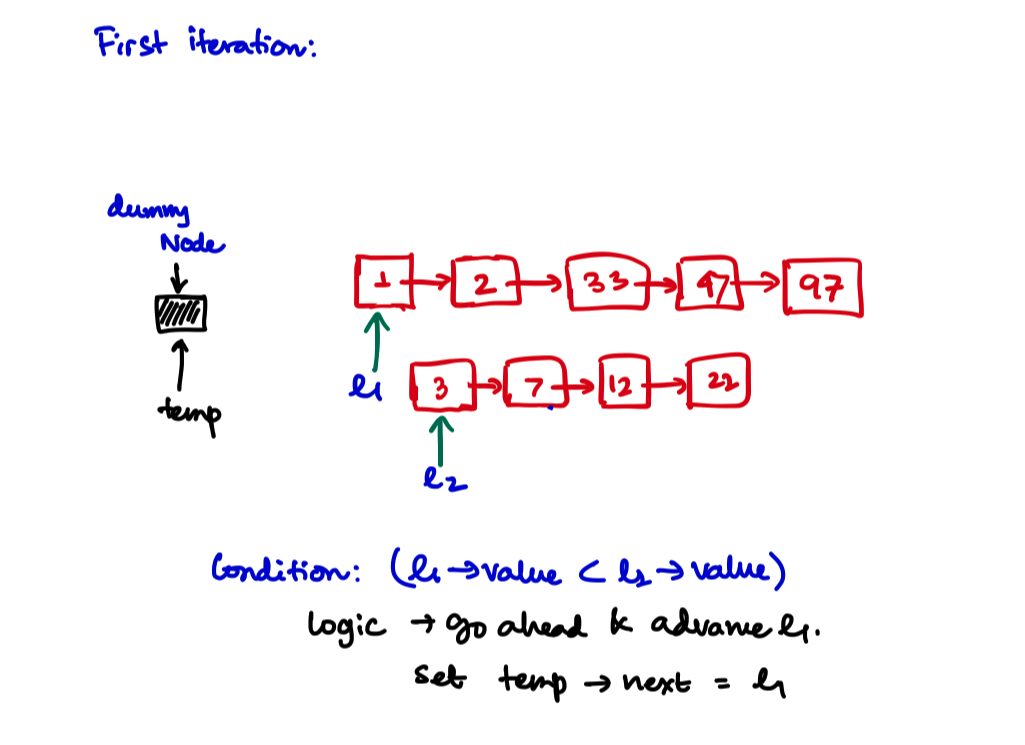 First iteration:
dummy
Node
temp
1 → 2 → 33 → 47 → 97
l1
3 → 7 → 12 → 22
l2
Condition: (l1 → value < l2 → value)
logic → go ahead & advance l1.
set temp → next = l1